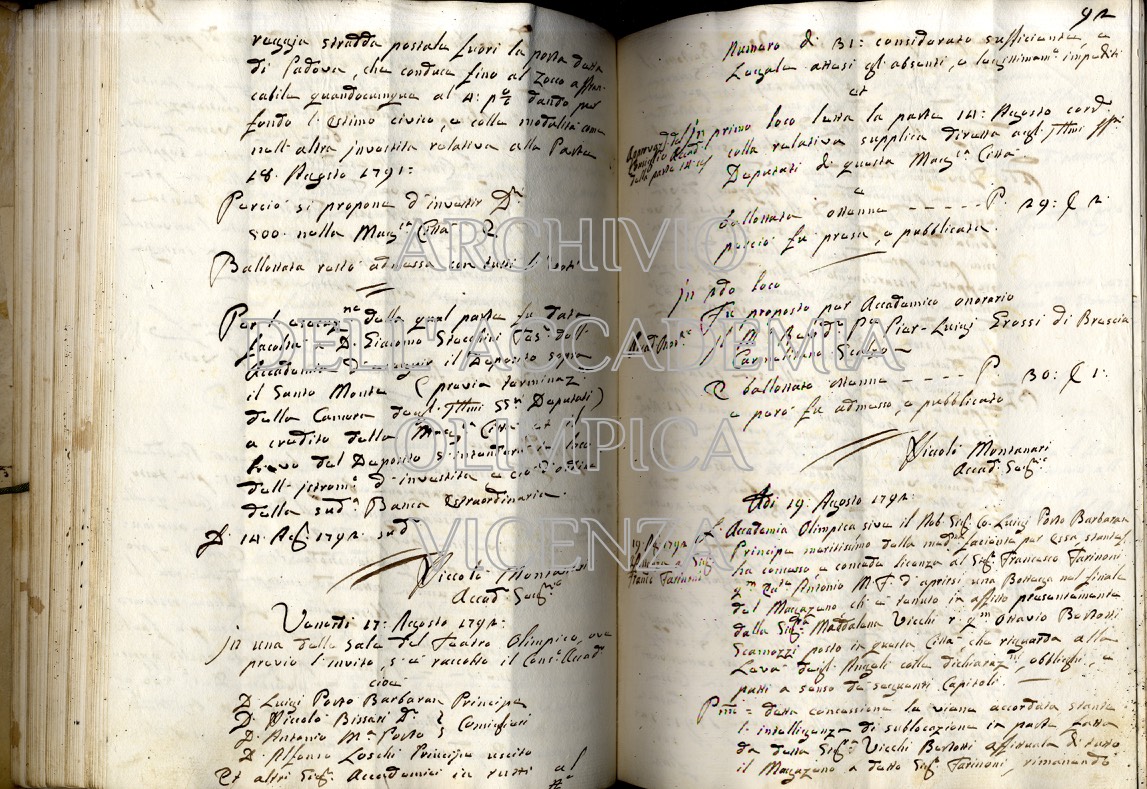 reggia stradda postale fuori la porta detta
di Padova, che conduce fino al Zocco affran-
cabile quandocunque al 4: p% dando per
fondo l'estimo civico, e colle modalità come
nell'altra investita relativa alla Parte
18. Agosto 1791:
Perciò si propone d'investir D.ti
500. nella Mag.ca Città
Ballottata restò admessa con tutti li voti
Per l'esecuz.ne della qual parte fu data
facoltà D. Giacomo Stecchini dell'
Accademia il Deposito sopra
il Santo Monte (previa terminaz.
della Camera degl'Ill.mi SS.ri Deputati)
a credito della Mag.ca Città et il
lievo del Deposito s'intenderà in loco
dell'istrom.o d'investita e ciò
della sud.a Banca Estraordinaria.
D. 14. Ag.o 1792. sud.o
Niccolò Montanari
Accad. Seg.rio
Venerdì 17: Agosto 1792:
In una delle Sale del Teatro Olimpico, ove
previo l'invito, s'è raccolto il Cons.o Accad.o
cioè
D. Luigi Porto Barbaran Principe
D. Niccolò Bissari D.
D. Antonio M.a Porto Consiglieri
D. Alfonso Loschi Principe uscito
Et altri Sig.ri Accademici in tutti al
n.o
92
Numero di 31: considerato sufficiente, e
Legale attesi gl'absenti, e legittimam.e impediti
et
In primo loco letta la parte 14: Agosto cor.e
colla relativa supplica diretta agl'Ill.mi SS.ri
Deputati di questa Mag.ca Città
Approvaz. del
Consiglio Accad.
della parte 14
e
ballottata ottenne - - - - - P. 29: C 2.
perciò fu presa, e pubblicata.
In 2do loco
Fu proposto per Accademico onorario
Il M. Rev.do P.re Pier-Luigi Grossi di Brescia
Accad. On.rio
Carmelitano Scalzo
E ballottato ottenne - - - - - P. 30: C 1:
e però fu admesso, e pubblicato
Niccolò Montanari
Accad. Seg.rio
Adi 19: Agosto 1792:
L'Accademia Olimpica sive il Nob. Sig. Co. Luigi Porto Barbaran
19 Ag. 1792
Licenza a Sig.
Franco Farinoni
Principe meritissimo della med.ma faciente per essa stante
ha concesso e concede licenza al Sig. Francesco Farinoni
q.m Antonio M. F. d'aprir una Bottega nel finale
del Magazeno ch'è tenuto in affitto presentemente
dalla Sig.ra Maddalena Vicchi r. q.m Ottavio Bertotti
Scamozzi posto in questa Città, che riguarda alla
Lava degl'Angeli colle dichiaraz.ni obblighi, e
patti a senso de seguenti Capitoli.
P.mo detta concessione le viene accordata stante
l'intelligenza di sublocazione in parte fatta
da detta Sig.ra Vicchi Bertotti affittuale di tutto
il Magazeno a detto Sig. Farinoni, rimanendo
ARCHIVIO
DELL'ACCADEMIA
OLIMPICA
VICENZA